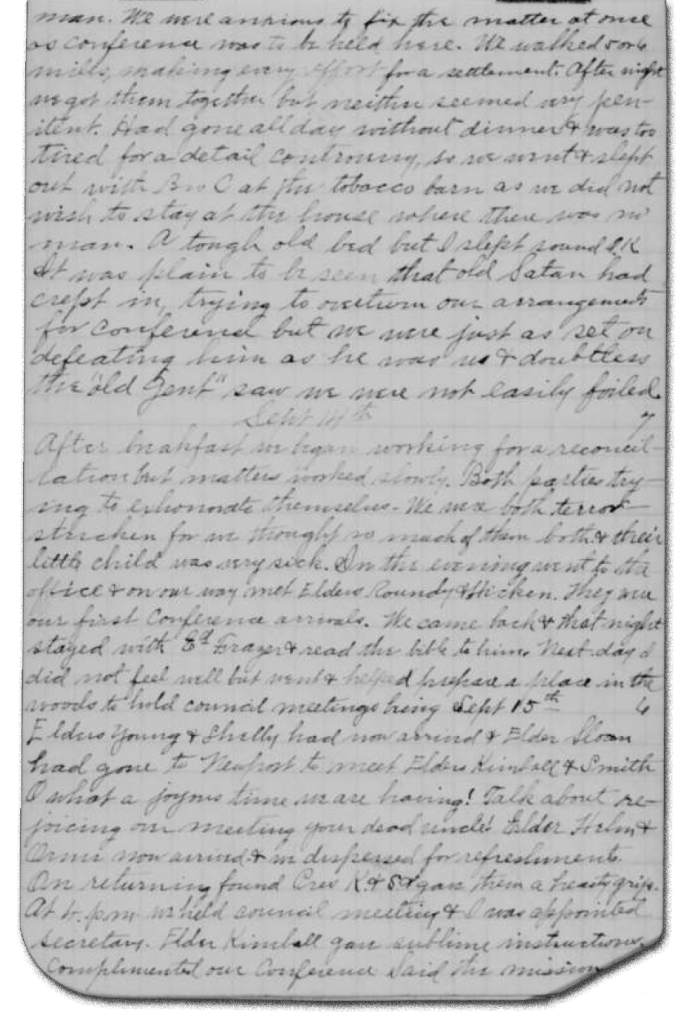 man. We were anxious to fix the matter at once
as conference was to be held here. We walked 5 or 6
mills, making every effort for a settlement. After night
we got them together but neither seemed very pen-
itent. Had gone all day without dinner & was too
tired for a detail controversy, so we went & slept
out with Bro C at the tobacco barn as we did not
wish to stay at the house where there was no
man. A tough old bed but I slept sound
It was plain to be seen that old Satan had
crept in, trying to overturn our arrangements
for conference but we were just as set on
defeating him as he was us & doubtless
the "old Gent" saw we were not easily foiled.
Sept 14th 7
After breakfast we began working for a reconcil-
iation but matters worked slowly. Both parties try-
ing to exhonorate themselves. We were both terror
stricken for we thought so much of them both & their
little child was very sick. In the evening went to the
office & on our way met Elders Roundy & Hicken. They are
our first Conference arrivals. We came back & that night
stayed with Ed Frazer & read the bible to him. Next day I
did not feel well but went & helped prepare a place in the
woods to hold council meetings being Sept 15th 6
Elders Young & Shelly had now arrived & Elder Sloan
had gone to Newport to meet Elders Kimball & Smith
O what a joyous time we are having! Talk about re-
joicing our meeting your dead uncle! Elder Helm &
now arrived & we dispersed for refreshments.
On returning found Pres K. & S. & gave them a hearty grip.
At 4. p.m. we held council meeting & I was appointed
secretary. Elder Kimball gave sublime instructions,
Complimented our Conference Said the mission